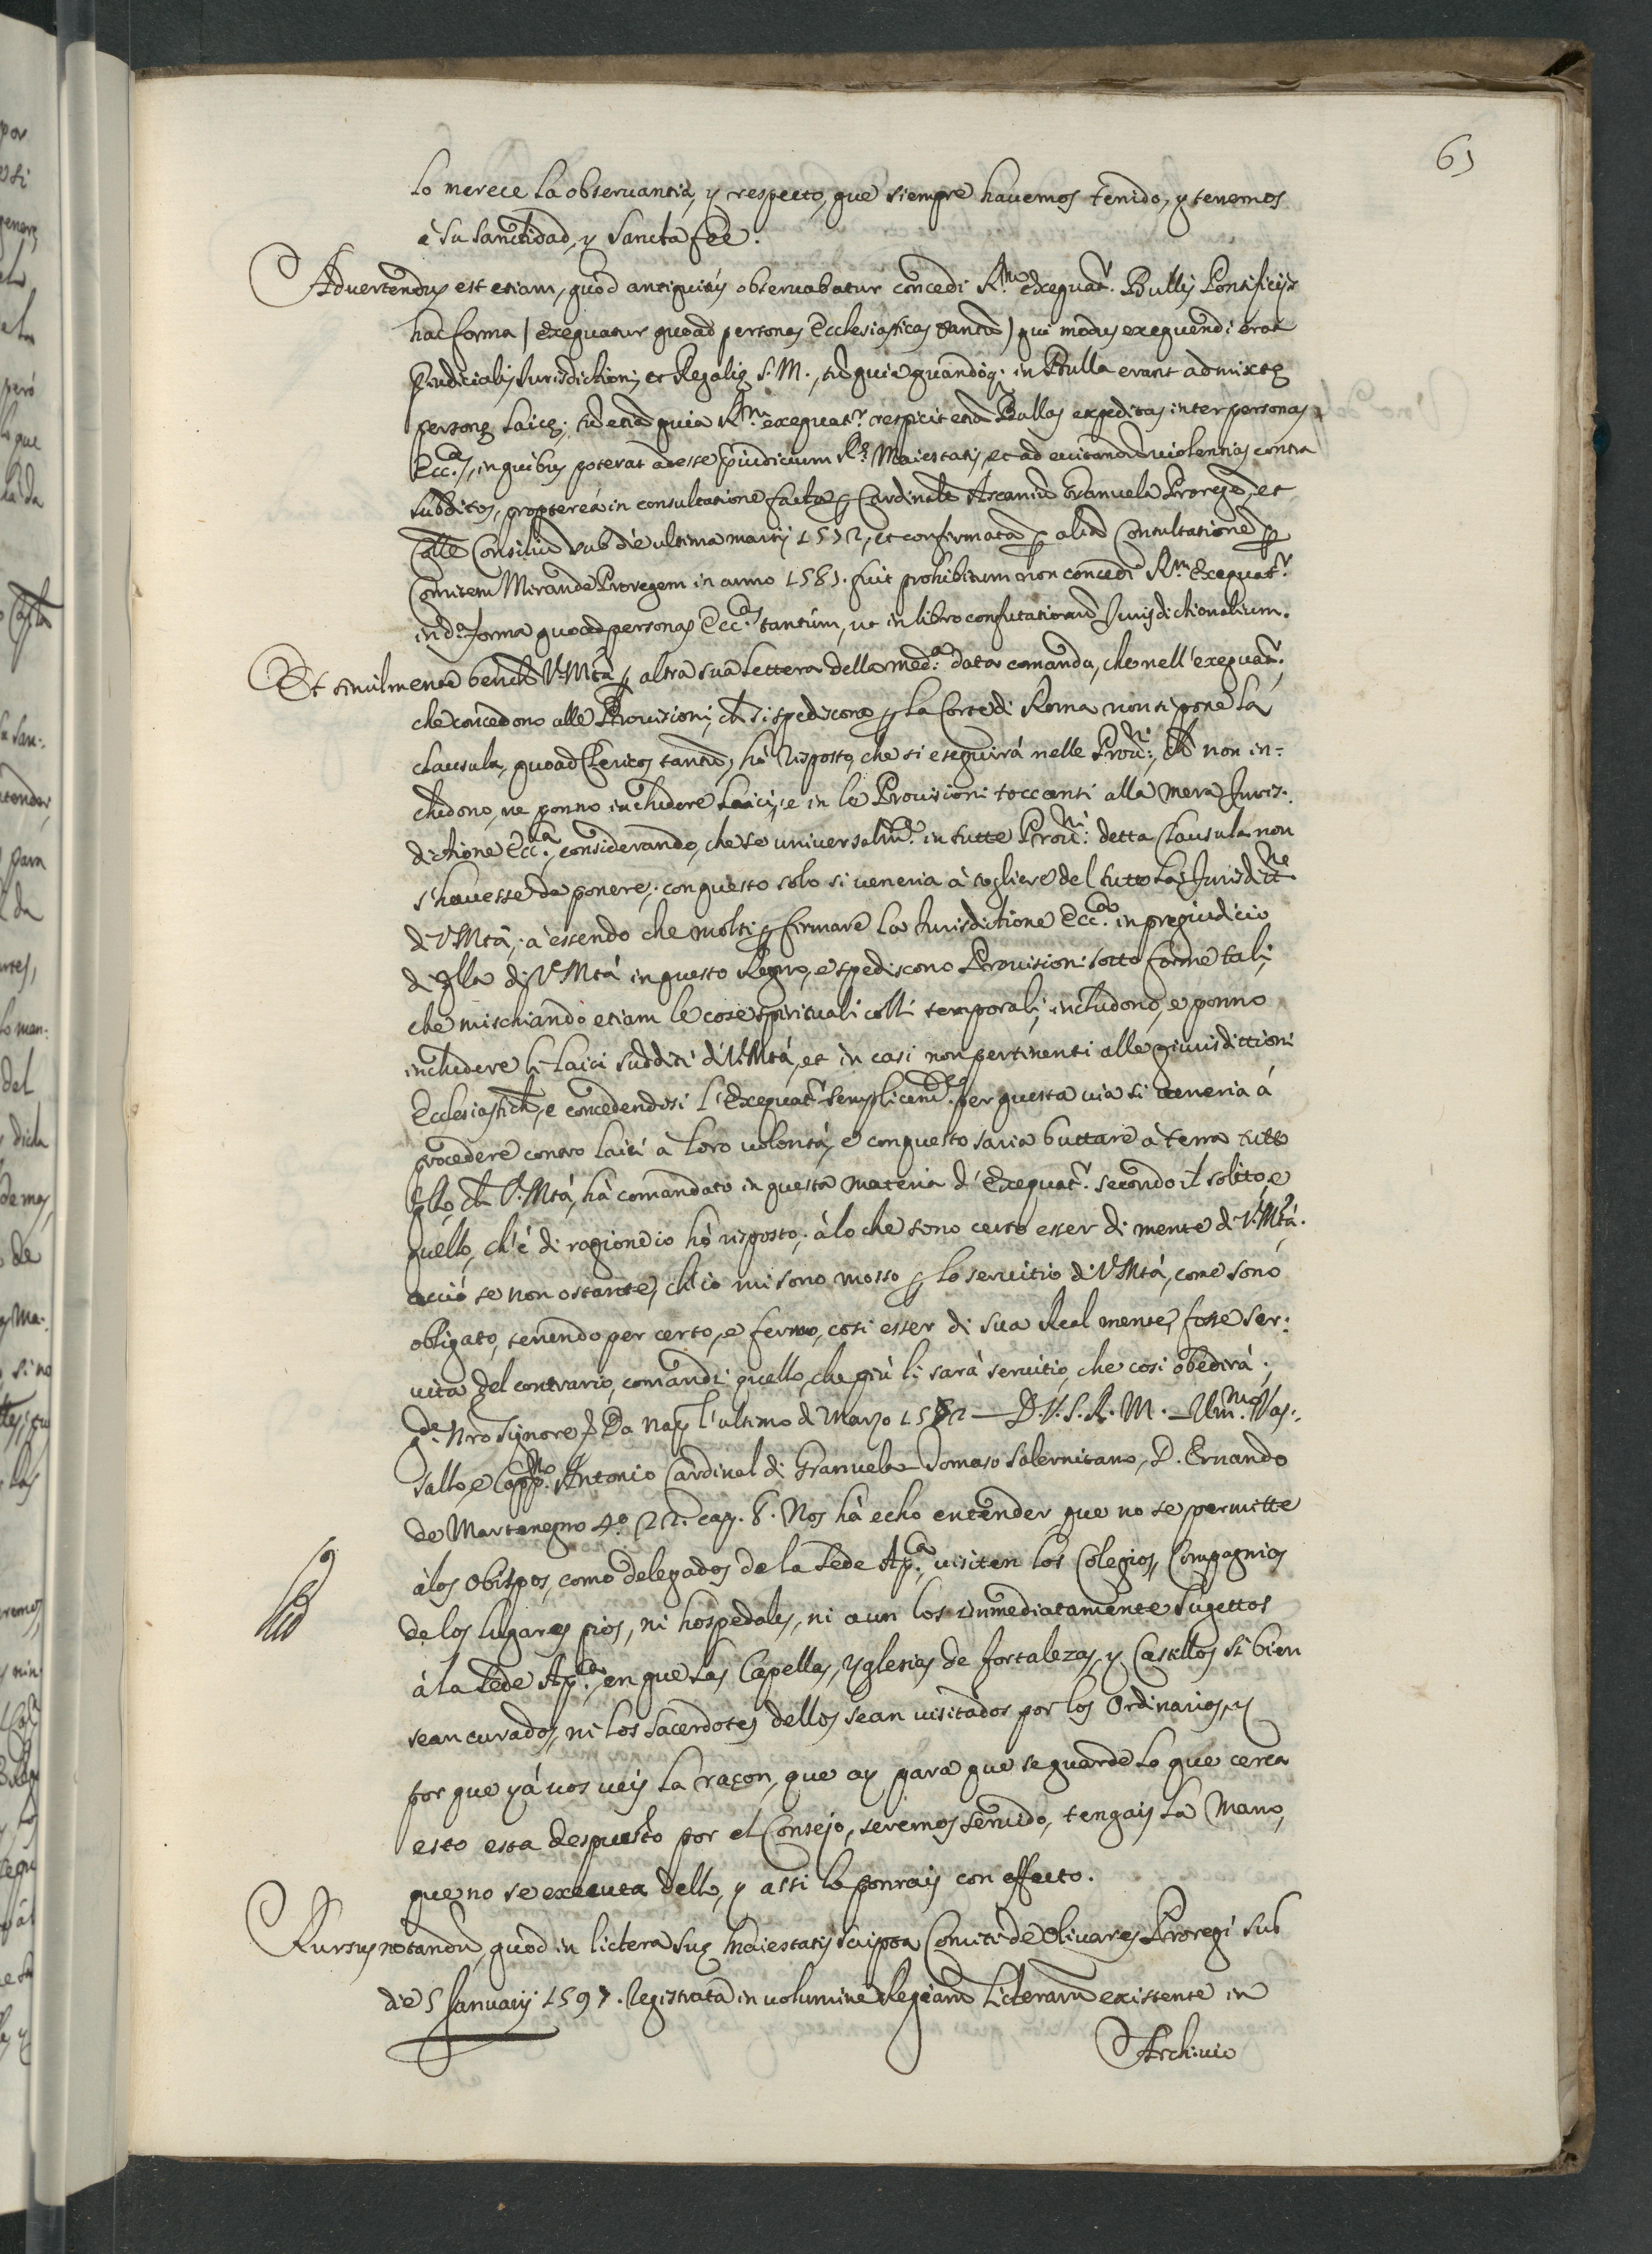 61
lo merece la obseruantia, y respecto, que siempre hauemos tenido, y tenemos
à su Sanctidad, y Sancta fee.
Aduertendũ est etiam, quòd antiquitùs obseruabatur concedi R.m exequat.r Bullis Pontificijs
hac forma (exequatur quoad personas Ecclesiasticas tantũ) qui modus exequendi erat
p̃iudicialis Iurisdictioni, et Regalię S. M., tũ quia quandoq; in Bulla erant admixtę
personę laicę; tũ etiã quia R.m exequat.r respicit etiã Bullas expeditas inter personas
Ecc.as, in quibus poterat adesse p̃iudicium R.ę Maiestatis, et ad euitandũ violentias contra
subditos, proptereà in consultatione facta ꝑ Cardinalẽ Ascaniũ Granuela Proregẽ, et
Coll.le Consiliũ sub die ultima martij 1572, et confirmata ꝑ aliã Consultationẽ ꝑ
Comitem Mirandę Proregem in anno 1581. fuit prohibitum non concedi R.m Exequat.r
in d.a forma quoad personas Ecc.as tantùm, ut in libro consultationũ Iurisdictionalium.
Et similmente benchè V. Mtà ꝑ altra sua lettera della med.a data comanda, che nell'exequat.r
che concedono alle Prouisioni, ch̃ si spediscono ꝑ la Corte di Roma non si pone la
clausula, quoad Clericos tantũ, hò risposto, che si eseguirà nelle Prou.ni, ch̃ non in-
chiudono, ne ponno inchiudere laici, e in le Prouisioni toccanti alla mera Juris-
dictione Ecc.a, considerando, che se uniuersalm.te in tutte Prou.ni detta Clausula non
s'hauesse da ponere, con questo solo si ueneria à togliere del tutto la Jurisdict.ne
di V. Mtà; a' essendo che molti ꝑ firmare la Jurisdictione Ecc.ca in pregiudicio
di q̃lla di V. Mtà in questo Regno, e spediscono Prouisioni sotto forme tali,
che mischiando etiam le cose spirituali colli temporali, includono, e ponno
includere li laici sudditi di V. Mtà, et in casi non pertinenti alle giurisdittioni
Ecclesiastich̃, e concedendosi l'Exequat.r semplicem.te per questa uia si ueneria à
procedere contro laici à loro uolontà, e con questo saria buttare à terra tutto
q̃llo, ch̃ V. Mtà, hà comandato in questa materia d'Exequat.r secondo il solito, e
quello, ch'è di ragione io hò risposto, à lo che sono certo esser di mente di V. Mtà.
acciò se non ostante, ch'io mi sono mosso ꝑ lo seruitio di V. Mtà, come sono
obligato, tenendo per certo, e fermo, cosi esser di sua Real mente, fosse ser-
uita del contrario, comandi quello, che più li sarà seruitio, che cosi obedirà;
g.de Nr̃o Signore &. Da Nap. l'ultimo di Marzo 1572 — D. V. S. R. M. — Um.mo Vas-
sallo, e Capp.no Antonio Cardinal di Granuela — Tomaso Salernitano, D. Ernando
de Martenegro 4.o 22. cap. 8. Nos hà echo entender, que no se permitte
à los Obispos, como delegados de la Sede Ap.ca, visiten los Colegios, Compagnias
de los lugares pios, ni hospedales, ni aun los inmediatamente sugettos
à la Sede Ap.ca, en que las Capellas, Yglesias de fortalezas, y Castillos si bien
sean curados, ni los sacerdotes dellos sean uisitados por los Ordinarios, y
por que yà uos ueis la raçon, que ay para que se guarde lo que cerca
esto esta despuesto por el Consejo, seremos seruido, tengais la Mano,
que no se executa dello, y assi lo ponrais con effecto.
Rursus notandũ, quòd in lictera suę Maiestatis scripta Comiti de Oliuares Proregi sub
die 5 Januarij 1597. registrata in uolumine Regiarũ licterarũ existente in
Archiuio